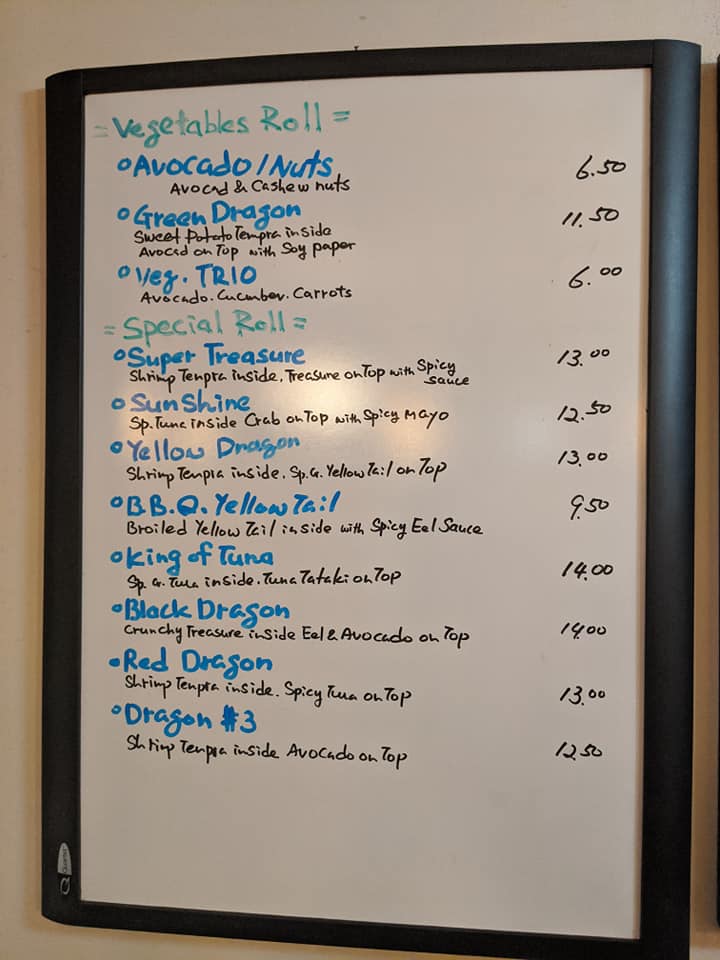 = Vegetables Roll =
Avocado / Nuts 6.50
Avocad & Cashew nuts
Green Dragon 11.50
Sweet Potato Tempra inside
Avocad on Top with Soy paper
Veg. TRIO 6.00
Avocado. Cucumber. Carrots
= Special Roll =
Super Treasure 13.00
Shrimp Tenpra inside. Treasure on Top with Spicy
sauce
SunShine 12.50
Sp. Tuna inside Crab on Top with Spicy Mayo
Yellow Dragon 13.00
Shrimp Tempra inside. Sp.G. Yellow Tail on Top
B.B.Q. Yellow Tail 9.50
Broiled Yellow Tail inside with Spicy Eel Sauce
King of Tuna 14.00
Sp. G. Tuna inside. Tuna Tataki on Top
Black Dragon 14.00
Crunchy Treasure inside Eel & Avocado on Top
Red Dragon 13.00
Shrimp Tenpra inside. Spicy Tuna on Top
Dragon #3 12.50
Shrimp Tenpra inside Avocado on Top
Quartet